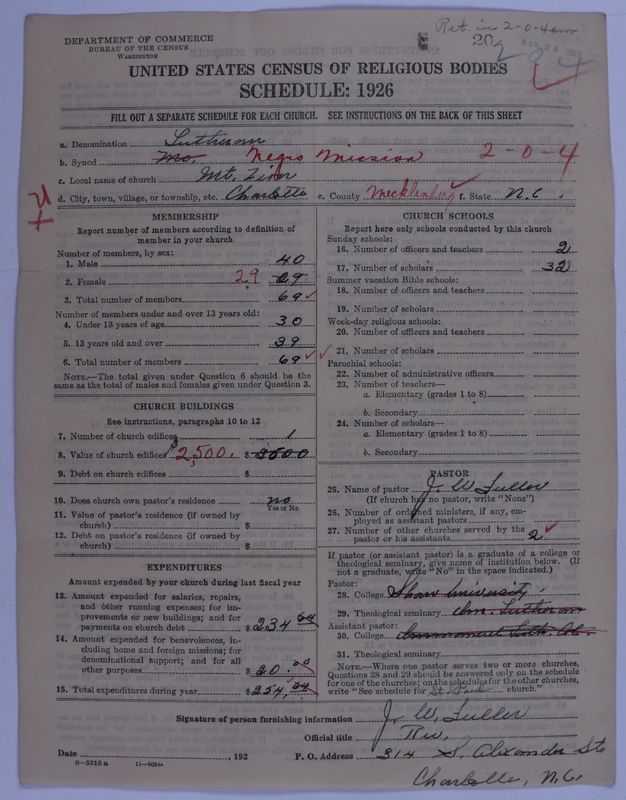 Ret. in 2-0-4
DEPARTMENT OF COMMERCE
BUREAU OF THE CENSUS
WASHINGTON
20
204
UNITED STATES CENSUS OF RELIGIOUS BODIES
SCHEDULE: 1926
FILL OUT A SEPARATE SCHEDULE FOR EACH CHURCH. SEE INSTRUCTIONS ON THE BACK OF THIS SHEET
a. Denomination Lutheran
b. Synod Mo. Negro Mission 2-0-4
c. Local name of church Mt. Zion
d. City, town, village, or township, etc. Charlotte e. County Mecklenburg f. State N.C.
MEMBERSHIP
Report number of members according to definition of
member in your church
Number of members, by sex:
1. Male 40
2. Female 29 29
3. Total number of members 69
Number of members under and over 13 years old:
4. Under 13 years of age 30
5. 13 years old and over 39
6. Total number of members 69
NOTE.—The total given under Question 6 should be the
same as the total of males and females given under Question 3.
CHURCH BUILDINGS
See instructions, paragraphs 10 to 12
7. Number of church edifices 1
8. Value of church edifices 2,500. $ 3500
9. Debt on church edifices $
10. Does church own pastor's residence no
Yes or No
11. Value of pastor's residence (if owned by
church) $
12. Debt on pastor's residence (if owned by
church) $
EXPENDITURES
Amount expended by your church during last fiscal year
13. Amount expended for salaries, repairs,
and other running expenses; for im-
provements or new buildings; and for
payments on church debt $ 234.64
14. Amount expended for benevolences, in-
cluding home and foreign missions; for
denominational support; and for all
other purposes $ 20.00
15. Total expenditures during year $ 254.64
CHURCH SCHOOLS
Report here only schools conducted by this church
Sunday schools:
16. Number of officers and teachers 2
17. Number of scholars 32
Summer vacation Bible schools:
18. Number of officers and teachers
19. Number of scholars
Week-day religious schools:
20. Number of officers and teachers
21. Number of scholars
Parochial schools:
22. Number of administrative officers
23. Number of teachers—
a. Elementary (grades 1 to 8)
b. Secondary
24. Number of scholars—
a. Elementary (grades 1 to 8)
b. Secondary
PASTOR
25. Name of pastor J. W. Fuller
(If church has no pastor, write "None")
26. Number of ordained ministers, if any, em-
ployed as assistant pastors
27. Number of other churches served by the
pastor or his assistants 2
If pastor (or assistant pastor) is a graduate of a college or
theological seminary, give name of institution below. (If
not a graduate, write "No" in the space indicated.)
Pastor:
28. College Shaw University
29. Theological seminary Lutheran
Assistant pastor:
30. College Immanuel Luth. Col.
31. Theological seminary
NOTE.—Where one pastor serves two or more churches,
Questions 28 and 29 should be answered only on the schedule
for one of the churches; on the schedules for the other churches,
write "See schedule for St. Paul church."
Signature of person furnishing information J. W. Fuller
Official title Rev.
Date , 192 P. O. Address 314 S. Alexander St.
8—5510a 11—9054a Charlotte, N.C.